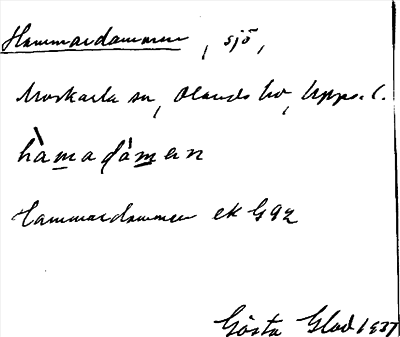 Hammardammen, sjö,
Morkarla sn, Olands hd, Upps. l.
hàmadàmen
Hammardammen ek G 92
Gösta Glad 1937